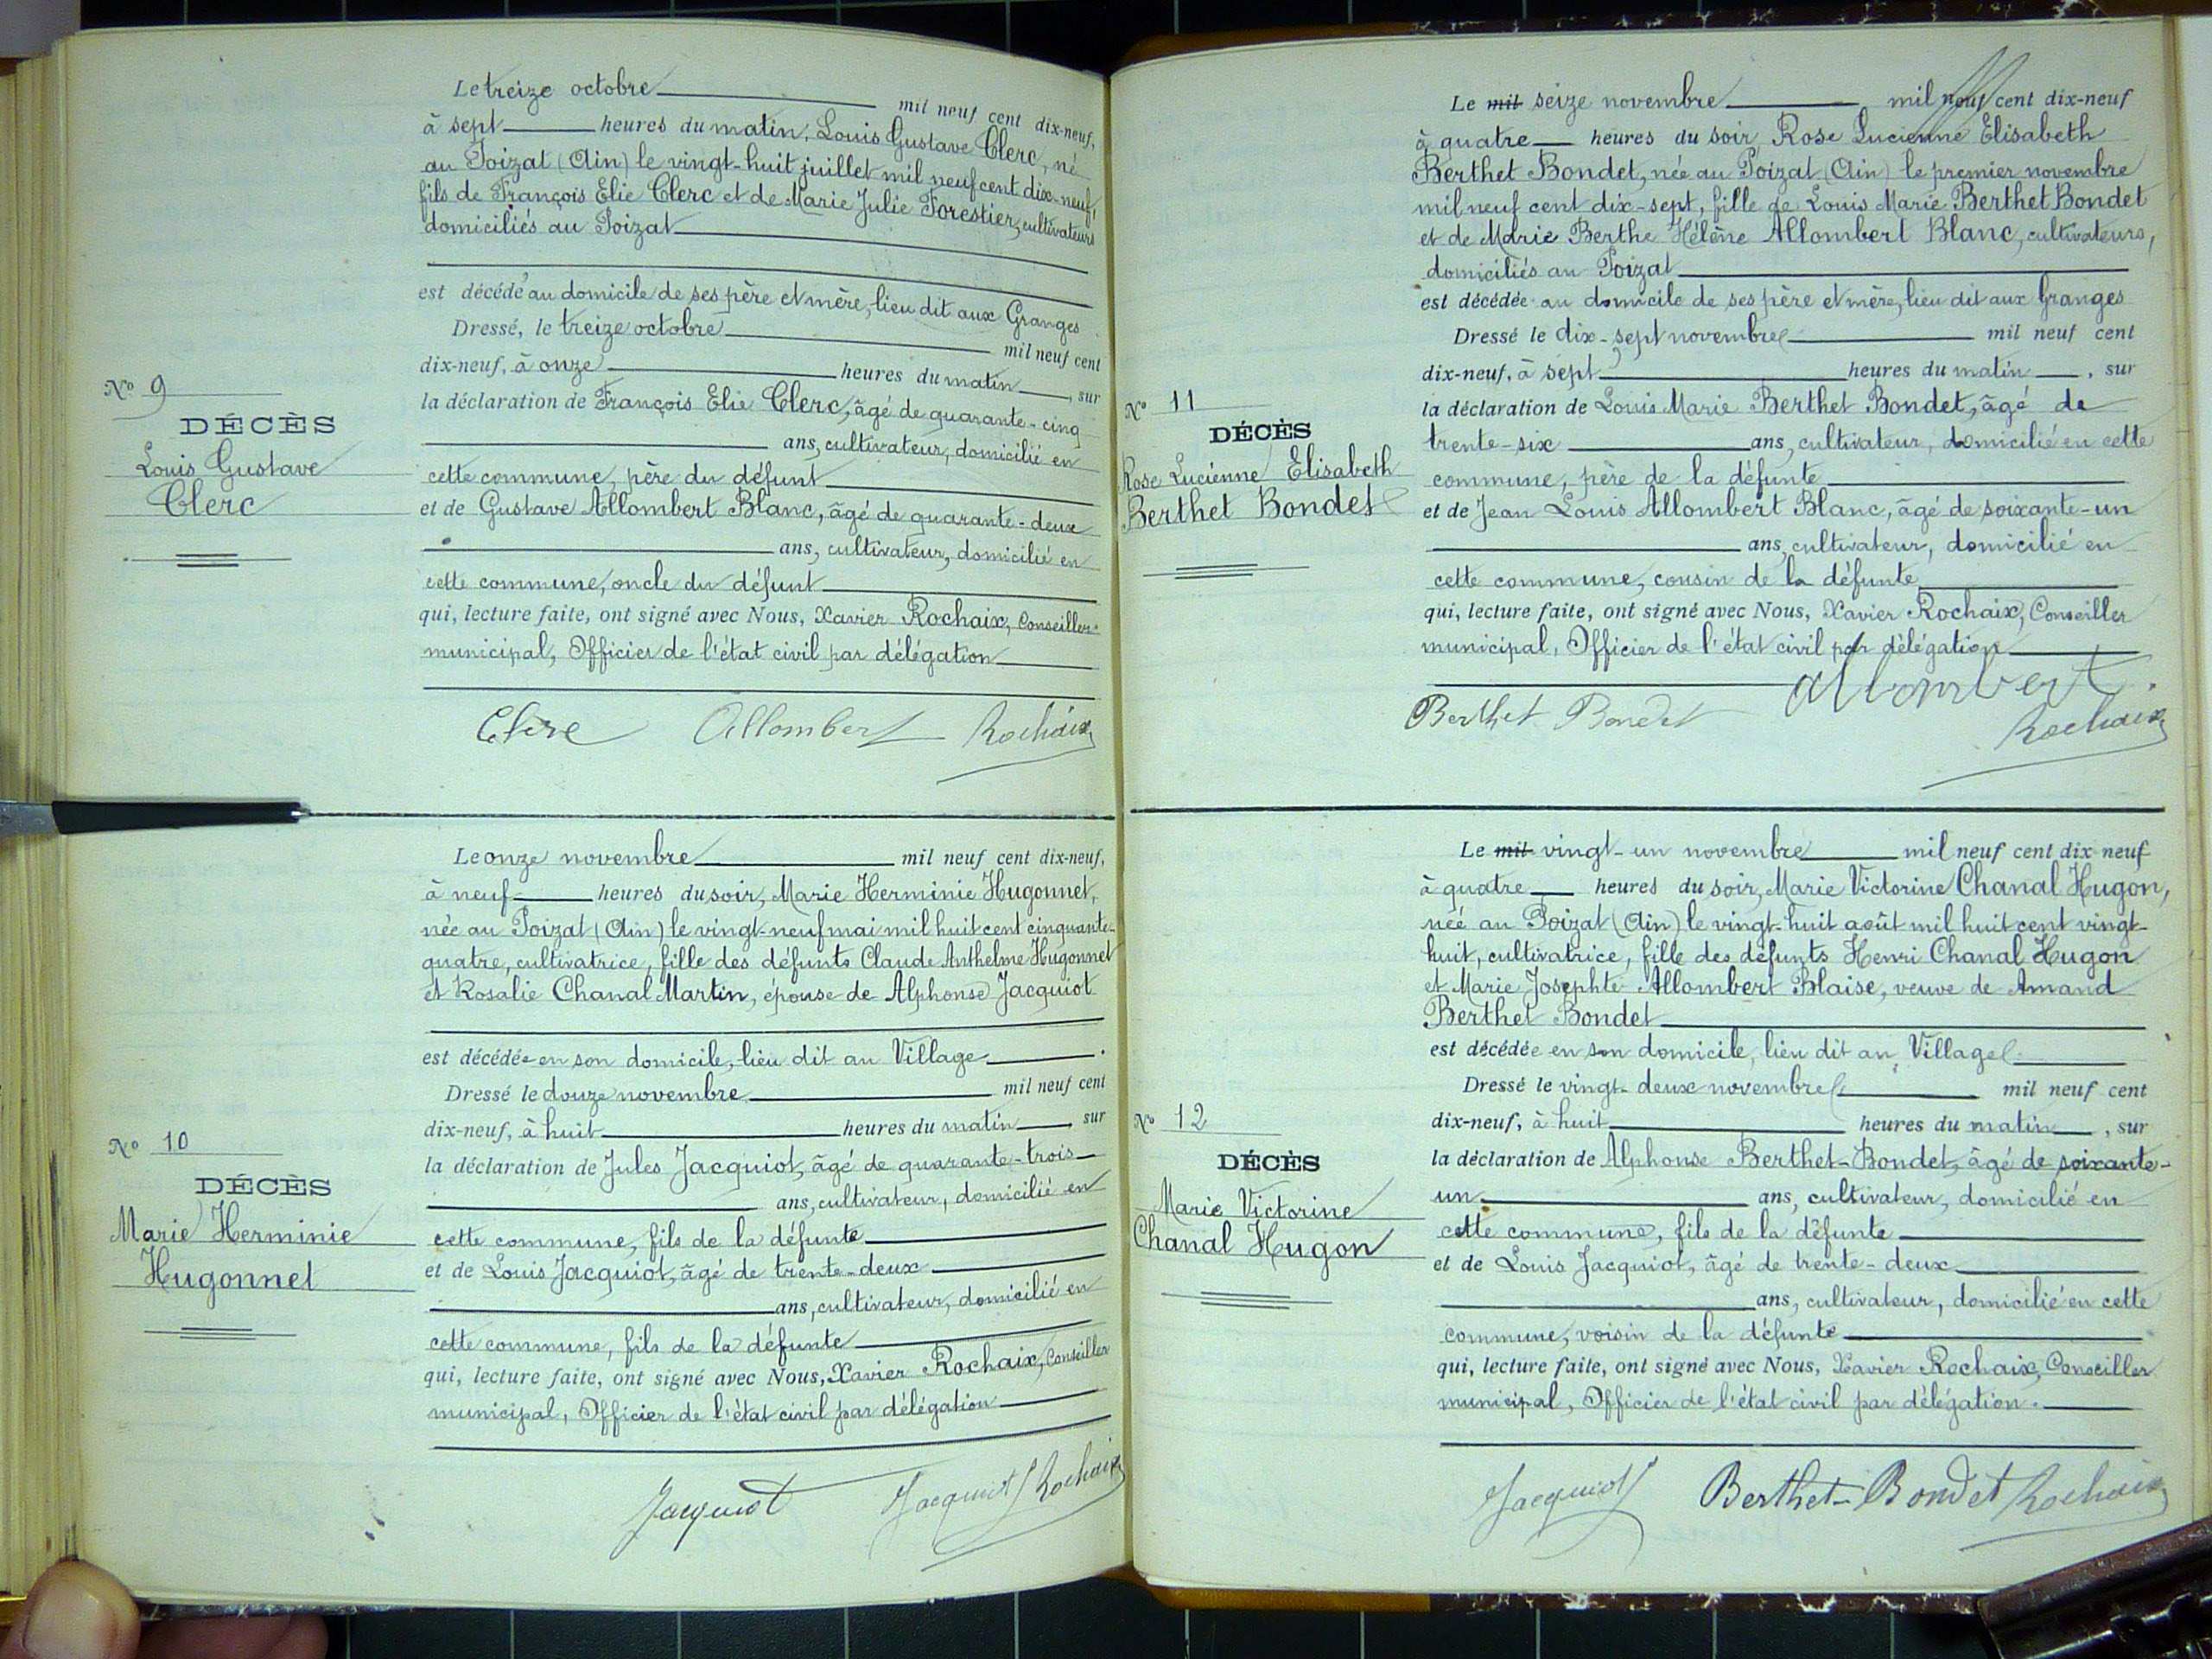 Le treize octobre mil neuf cent dix-neuf,
à sept heures du matin, Louis Gustave Clerc, né
au Poizat (Ain) le vingt-huit juillet mil neuf cent dix-neuf,
fils de François Elie Clerc et de Marie Julie Forestier, cultivateurs
domiciliés au Poizat
est décédé au domicile de ses père et mère, lieu dit aux Granges
Dressé, le treize octobre mil neuf cent
dix-neuf, à onze heures du matin, sur
la déclaration de François Elie Clerc, âgé de quarante-cinq
ans, cultivateur, domicilié en
cette commune, père du défunt
et de Gustave Allombert Blanc, âgé de quarante-deux
ans, cultivateur, domicilié en
cette commune, oncle du défunt
qui, lecture faite, ont signé avec Nous, Xavier Rochaix, Conseiller
municipal, Officier de l'état civil par délégation
Clerc Allombert Rochaix
N° 9
DÉCÈS
Louis Gustave
Clerc
Le onze novembre mil neuf cent dix-neuf,
à neuf heures du soir, Marie Herminie Hugonnet,
née au Poizat (Ain) le vingt-neuf mai mil huit cent cinquante-
quatre, cultivatrice, fille des défunts Claude Anthelme Hugonnet
et Rosalie Chanal Martin, épouse de Alphonse Jacquiot
est décédée en son domicile, lieu dit au Village.
Dressé le douze novembre mil neuf cent
dix-neuf, à huit heures du matin, sur
la déclaration de Jules Jacquiot, âgé de quarante-trois
ans, cultivateur, domicilié en
cette commune, fils de la défunte
et de Louis Jacquiot, âgé de trente-deux
ans, cultivateur, domicilié en
cette commune, fils de la défunte
qui, lecture faite, ont signé avec Nous, Xavier Rochaix, Conseiller
municipal, Officier de l'état civil par délégation
Jacquiot Jacquiot Rochaix
N° 10
DÉCÈS
Marie Herminie
Hugonnet
Le mil seize novembre mil neuf cent dix-neuf
à quatre heures du soir, Rose Lucienne Elisabeth
Berthet Bondet, née au Poizat (Ain) le premier novembre
mil neuf cent dix-sept, fille de Louis Marie Berthet Bondet
et de Marie Berthe Hélène Allombert Blanc, cultivateurs,
domiciliés au Poizat
est décédée au domicile de ses père et mère, lieu dit aux Granges
Dressé le dix-sept novembre mil neuf cent
dix-neuf, à sept heures du matin, sur
la déclaration de Louis Marie Berthet Bondet, âgé de
trente-six ans, cultivateur, domicilié en cette
commune, père de la défunte
et de Jean Louis Allombert Blanc, âgé de soixante-un
ans, cultivateur, domicilié en
cette commune, cousin de la défunte
qui, lecture faite, ont signé avec Nous, Xavier Rochaix, Conseiller
municipal, Officier de l'état civil par délégation
Berthet Bondet Allombert
Rochaix
N° 11
DÉCÈS
Rose Lucienne Elisabeth
Berthet Bondet
Le mil vingt-un novembre mil neuf cent dix neuf
à quatre heures du soir, Marie Victorine Chanal Hugon,
née au Poizat (Ain) le vingt-huit août mil huit cent vingt-
huit, cultivatrice, fille des défunts Henri Chanal Hugon
et Marie Josephte Allombert Blaise, veuve de Amand
Berthet Bondet
est décédée en son domicile, lieu dit au Village
Dressé le vingt-deux novembre mil neuf cent
dix-neuf, à huit heures du matin, sur
la déclaration de Alphonse Berthet-Bondet, âgé de soixante-
un ans, cultivateur, domicilié en
cette commune, fils de la défunte
et de Louis Jacquiot, âgé de trente-deux
ans, cultivateur, domicilié en cette
commune, voisin de la défunte
qui, lecture faite, ont signé avec Nous, Xavier Rochaix, Conseiller
municipal, Officier de l'état civil par délégation.
Jacquiot Berthet-Bondet Rochaix
N° 12
DÉCÈS
Marie Victorine
Chanal Hugon